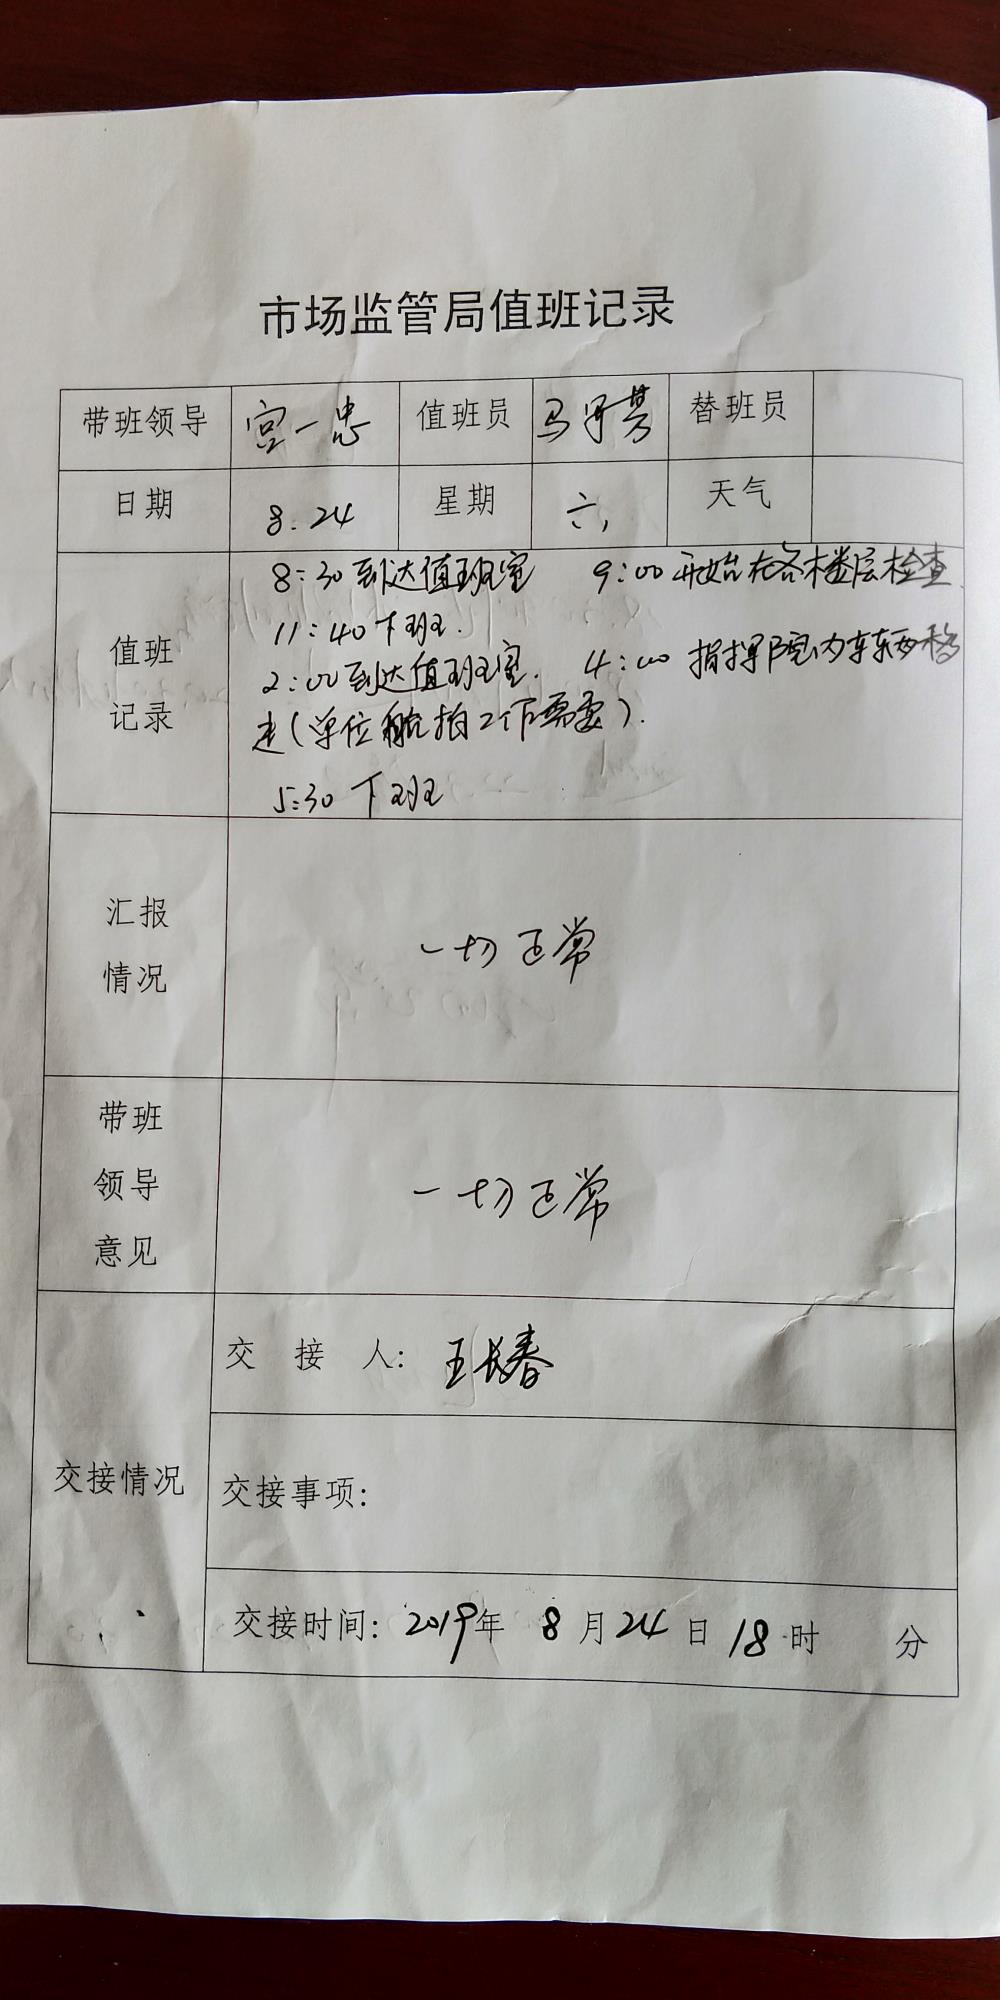 市场监管局值班记录
带班领导 宫一忠 值班员 马 芳 替班员
日期 8.24 星期 六 天气
值班记录
8:30到达值班室 9:00开始在各楼层检查
11:40下班.
2:00到达值班室. 4:00 指挥院内车东西移
走(单位航拍工作需要).
5:30下班
汇报情况
一切正常
带班领导意见
一切正常
交接情况
交接人: 王长春
交接事项:
交接时间: 2019年 8月24日18时 分